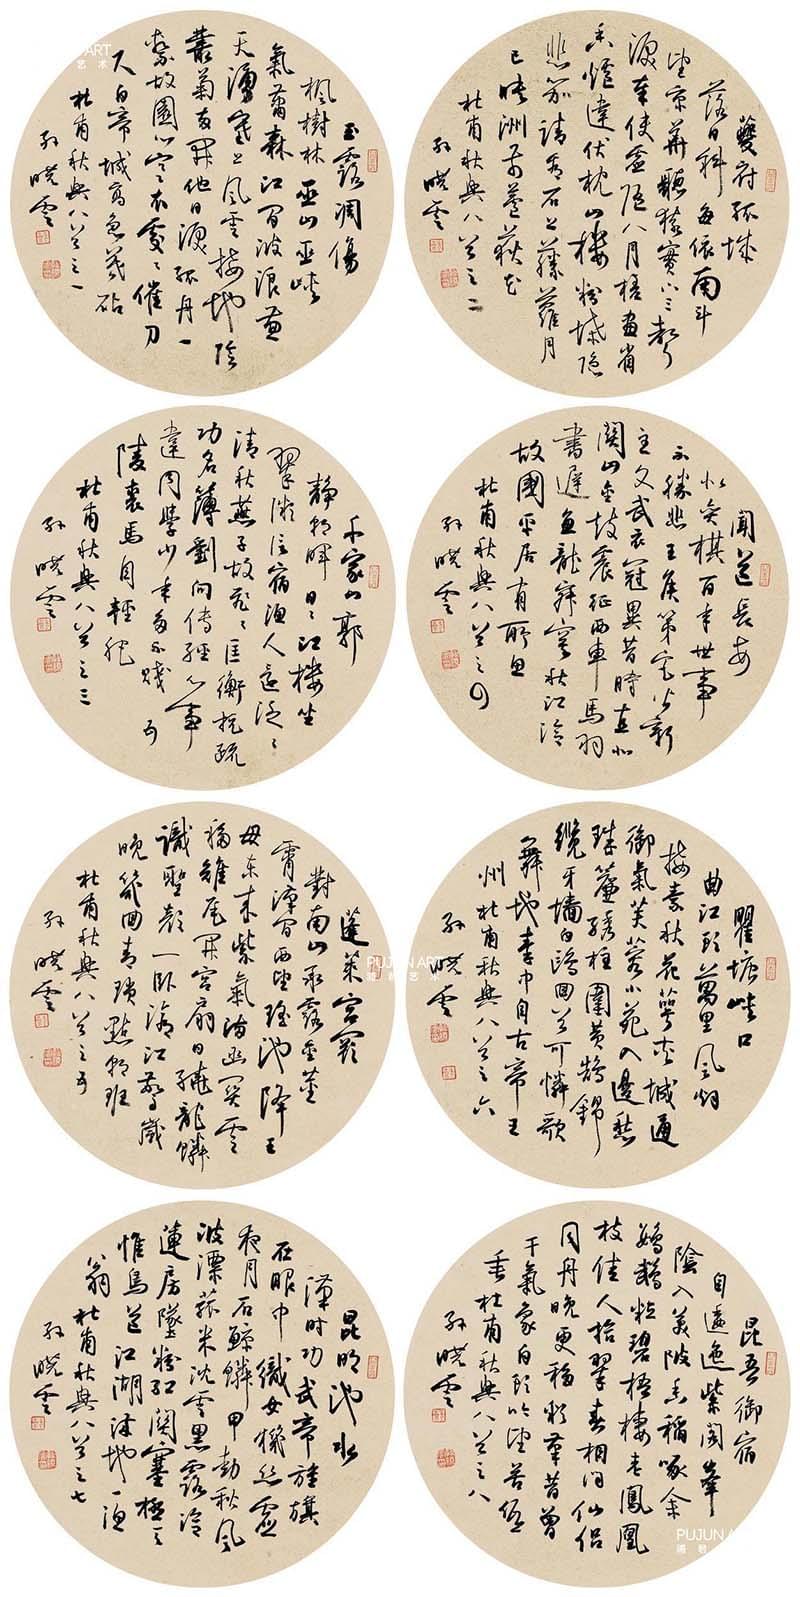 玉露凋傷
楓樹林巫山巫峽
氣蕭森江間波浪兼
天湧塞上風雲接地陰
叢菊兩開他日淚孤舟一
繫故園心寒衣處〻催刀
尺白帝城高急暮砧
杜甫秋興八首之一
孫曉雲
夔府孤城
落日斜每依南斗
望京華聽猿實下三聲
淚奉使虛隨八月槎畫省
香爐違伏枕山樓粉堞隱
悲笳請看石上藤蘿月
已映洲前蘆荻花
杜甫秋興八首之二
孫曉雲
千家山郭
靜朝暉日〻江樓坐
翠微信宿漁人還泛〻
清秋燕子故飛〻匡衡抗疏
功名薄劉向傳經心事
違同學少年多不賤五
陵裘馬自輕肥
杜甫秋興八首之三
孫曉雲
聞道長安
似弈棋百年世事
不勝悲王侯第宅皆新
主文武衣冠異昔時直北
關山金鼓震征西車馬羽
書遲魚龍寂寞秋江冷
故國平居有所思
杜甫秋興八首之四
孫曉雲
蓬萊宮闕
對南山承露金莖
霄漢間西望瑤池降王
母東來紫氣滿函關雲
移雉尾開宮扇日繞龍鱗
識聖顏一臥滄江驚歲
晚幾回青瑣點朝班
杜甫秋興八首之五
孫曉雲
瞿塘峽口
曲江頭萬里風煙
接素秋花萼夾城通
御氣芙蓉小苑入邊愁
珠簾繡柱圍黃鵠錦
纜牙檣白鷗回首可憐歌
舞地秦中自古帝王
州杜甫秋興八首之六
孫曉雲
昆明池水
漢時功武帝旌旗
在眼中織女機絲虛
夜月石鯨鱗甲動秋風
波漂菰米沈雲黑露冷
蓮房墜粉紅關塞極天
惟鳥道江湖滿地一漁
翁杜甫秋興八首之七
孫曉雲
昆吾御宿
自逶迤紫閣峰
陰入渼陂香稻啄餘
鸚鵡粒碧梧棲老鳳凰
枝佳人拾翠春相問仙侶
同舟晚更移彩筆昔曾
干氣象白頭吟望苦低
垂杜甫秋興八首之八
孫曉雲
PUJUN ART